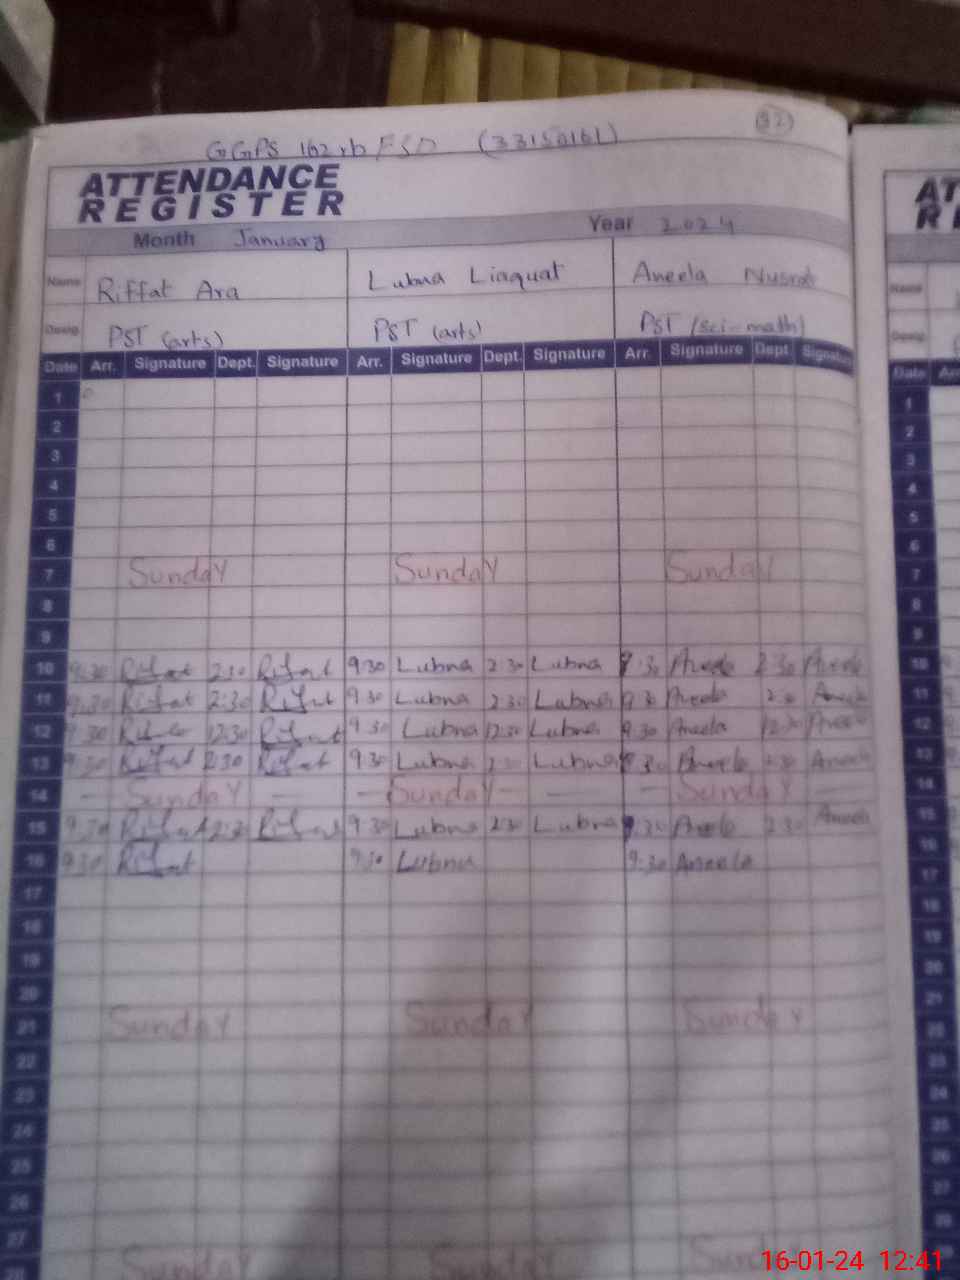 32
GGPS 162 rb FSD (33150161)
ATTENDANCE
REGISTER
Month January Year 2024
Name Riffat Ara Lubna Liaquat Aneela Nusrat
Desig. PST (arts) PST (arts) PST (sci-math)
Date Arr. Signature Dept. Signature Arr. Signature Dept. Signature Arr. Signature Dept Signature
1
2
3
4
5
6
7 Sunday Sunday Sunday
8
9
10 9:30 Riffat 2:30 Riffat 9:30 Lubna 2:30 Lubna 9:30 Aneela 2:30 Aneela
11 9:30 Riffat 2:30 Riffat 9:30 Lubna 2:30 Lubna 9:30 Aneela 2:30 Aneela
12 9:30 Riffat 12:30 Riffat 9:30 Lubna 12:30 Lubna 9:30 Aneela 12:30 Aneela
13 9:30 Riffat 2:30 Riffat 9:30 Lubna 2:30 Lubna 9:30 Aneela 2:30 Aneela
14 — Sunday — — Sunday — — — Sunday —
15 9:30 Riffat 2:30 Riffat 9:30 Lubna 2:30 Lubna 9:30 Aneela 2:30 Aneela
16 9:30 Riffat 9:30 Lubna 9:30 Aneela
17
18
19
20
21 Sunday Sunday Sunday
22
23
24
25
26
27
28 Sunday Sunday Sunday
AT
RE
Name
Desig.
Date Arr
1
2
3
4
5
6
7
8
9
10
11
12
13
14
15
16
17
18
19
20
21
22
23
24
25
26
27
28
16-01-24 12:41